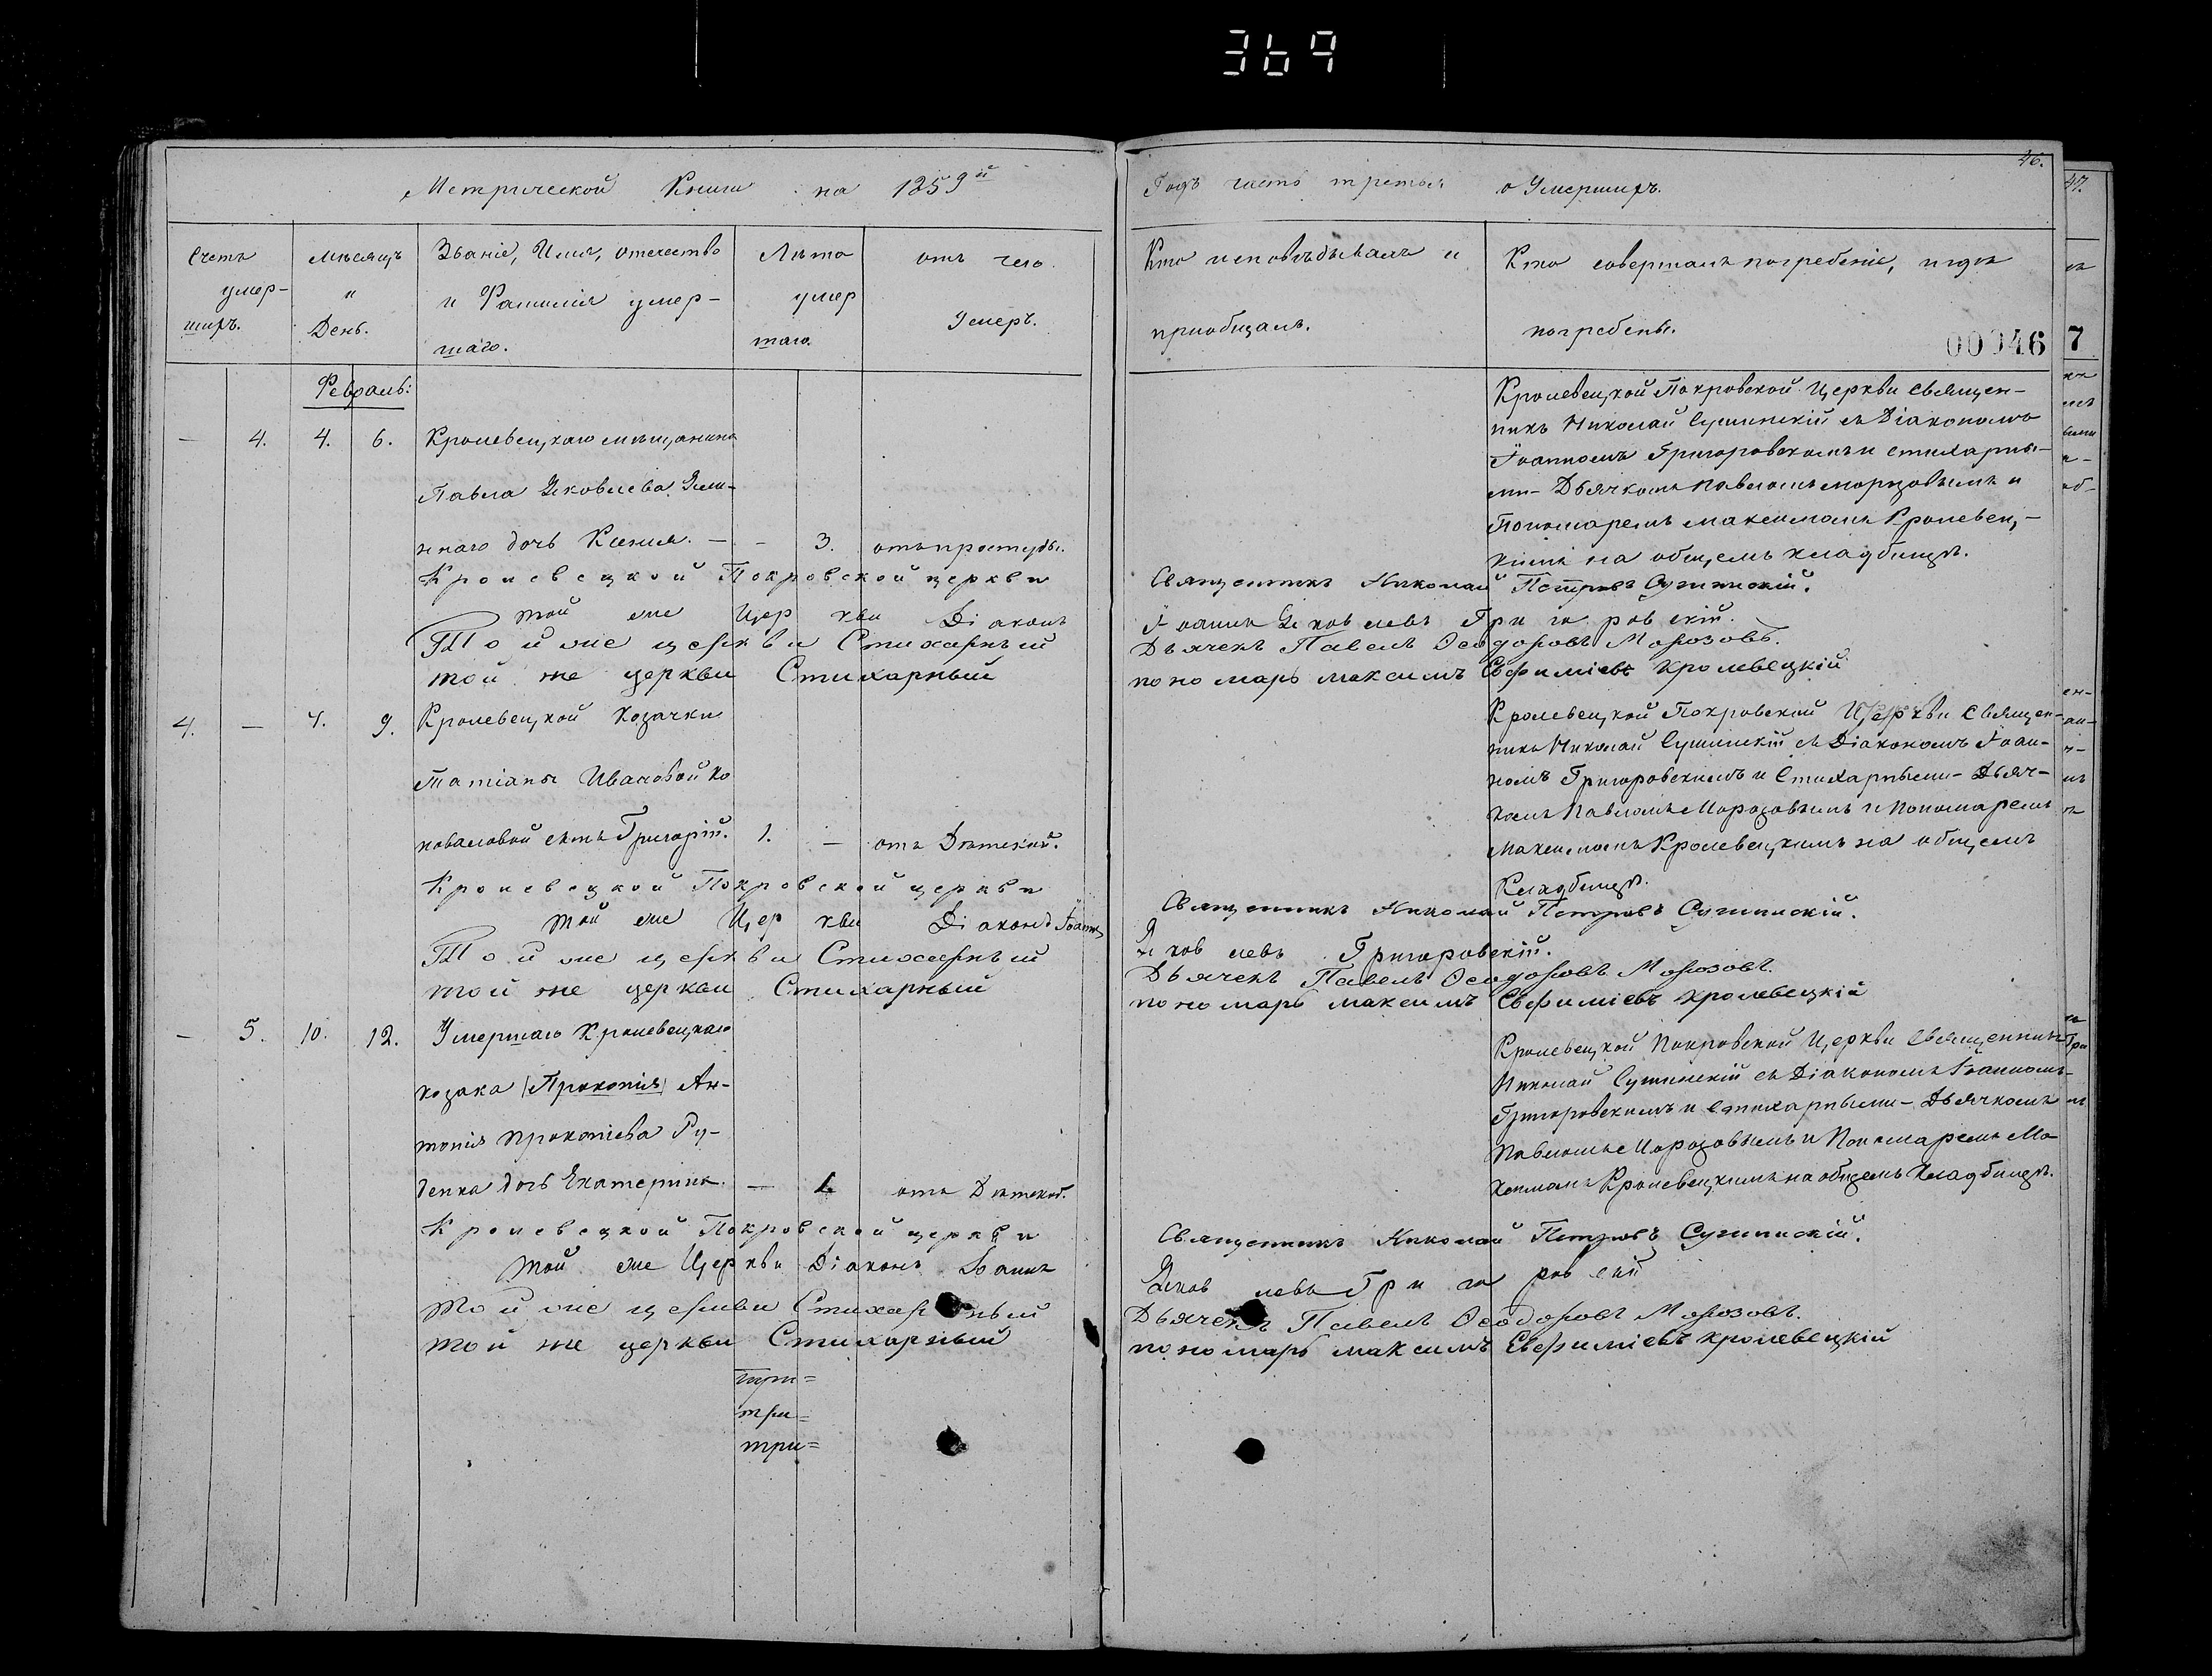 369
Метрической Книги на 1859й
Годъ часть третья о Умершихъ.
46.
47.
Счетъ умер-
шихъ.
Мѣсяцъ
и
День.
Званіе, Имя, Отечество
и Фамилія умер-
шаго.
Лѣта
умер
шаго.
отъ чего
Умеръ.
Кто исповѣдывалъ и
пріобщалъ.
Кто совершалъ погребеніе, и гдѣ
погребены.
00046
7
Февраль:
— 4. 4. 6. Кролевецкаго мѣщанина
Павла Яковлева
наго дочь Ксенія. — - 3. отъ простуды.
Кролевецкой Покровской Церкви Священ-
никъ Николай Сушинскій съ Діакономъ
Іоанномъ Григоровскимъ и стихарны-
ми - Дьячкомъ Павломъ Морозовымъ и
Пономаремъ Максимомъ Кролевец-
кимъ на общемъ кладбищѣ.
Кролевецкой Покровской церкви Священникъ Николай Петровъ Сушинскій.
той же Церкви Діаконъ Іоаннъ Яковлевъ Григоровскій.
Той же церкви Стихарный Дьячекъ Павелъ Ѳеодоровъ Морозовъ.
той же церкви Стихарный пономарь максимъ Евфиміевъ кролевецкій
4. — 4. 9. Кролевецкой Козачки
Татіаны Ивановой Ко
новаловой сынъ Григорій. 1. — отъ Дѣтской.
Кролевецкой Покровской Церкви Священ-
никъ Николай Сушинскій съ Діакономъ Іоан-
номъ Григоровскимъ и Стихарными - Дьяч-
комъ Павломъ Морозовымъ и Пономаремъ
Максимомъ Кролевецкимъ на общемъ
Кладбищѣ.
Кролевецкой Покровской церкви Священникъ Николай Петровъ Сушинскій.
той же Церкви Діаконъ Іоаннъ Яковлевъ Григоровскій.
Той же церкви Стихарный Дьячекъ Павелъ Ѳеодоровъ Морозовъ.
той же церкви Стихарный пономарь максимъ Евфиміевъ кролевецкій
— 5. 10. 12. Умершаго Кролевецкаго
козака (Прокопія) Ан-
тонія Прокопіева Ру-
денка дочь Екатерина. — 1. отъ Дѣтской.
Кролевецкой Покровской Церкви Священникъ
Николай Сушинскій съ Діакономъ Іоанномъ
Григоровскимъ и Стихарными - Дьячкомъ
Павломъ Морозовымъ и Пономаремъ Ма-
ксимомъ Кролевецкимъ на общемъ Кладбищѣ.
Кролевецкой Покровской церкви Священникъ Николай Петровъ Сушинскій.
той же Церкви Діаконъ Іоаннъ Яковлевъ Григоровскій
той же церкви Стихарный Дьячекъ Павелъ Ѳеодоровъ Морозовъ.
той же церкви Стихарный пономарь максимъ Евфиміевъ кролевецкій
три=
три=
три=